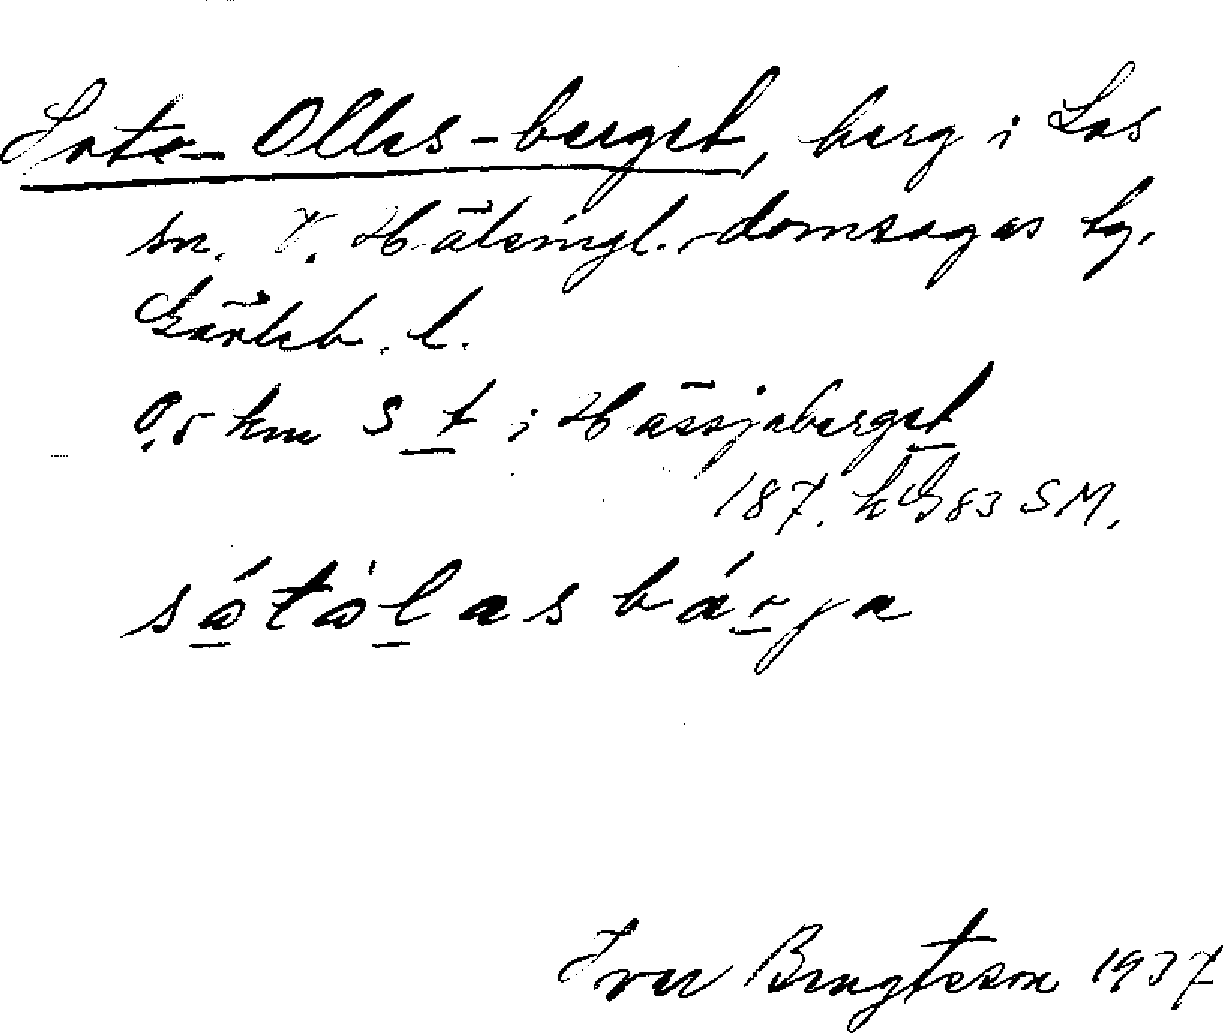 Sote-Olles-berget, berg i Los
sn. V. Hälsingl. domsagas tg.
Gävleb. l.
0,5 km S t i Hässjaberget
187. h G83 SM.
sótòlasbárja
Iver Bengtsson 1937